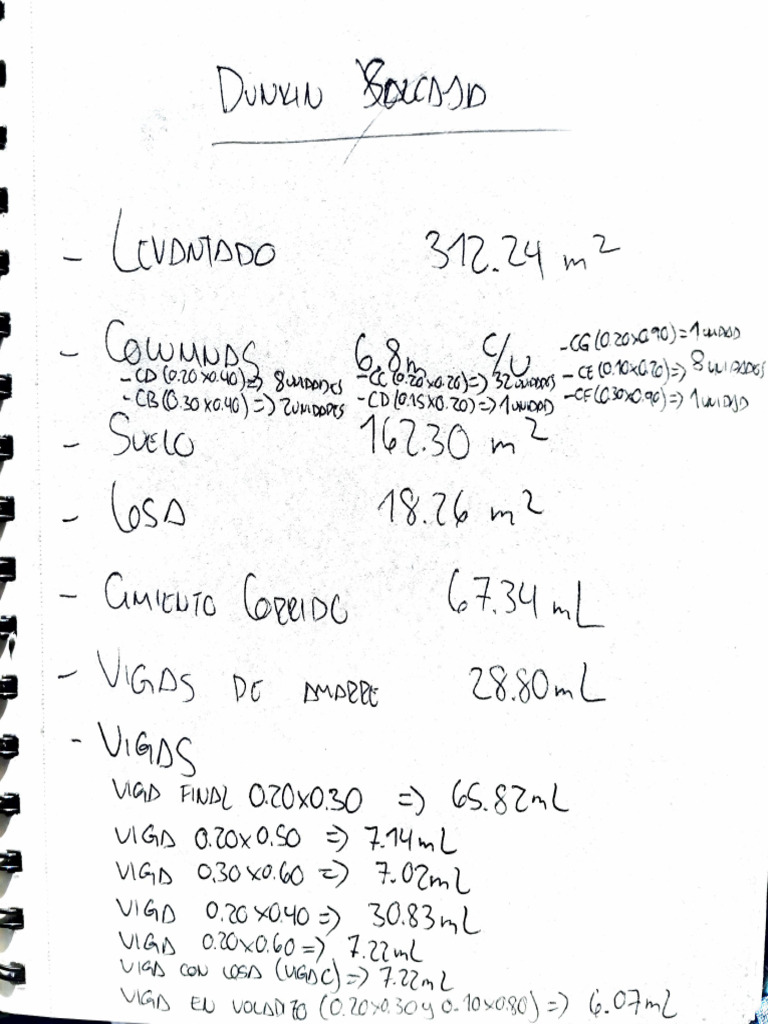 DUNKIN
- LEVANTADO 312.24 m²
- COLUMNAS 6.8m C/U
- CD (0.20x0.40) => 8 UNIDADES
- CB (0.30x0.40) => 2 UNIDADES
- CC (0.20x0.20) => 32 UNIDADES
- CD (0.15x0.20) => 1 UNIDAD
- CG (0.20x0.90) = 1 UNIDAD
- CE (0.10x0.20) => 8 UNIDADES
- CF (0.30x0.90) => 1 UNIDAD
- SUELO 162.30 m²
- LOSA 18.26 m²
- CIMIENTO CORRIDO 67.34 mL
- VIGAS DE AMARRE 28.80 mL
- VIGAS
VIGA FINAL 0.20x0.30 => 65.82 mL
VIGA 0.20x0.50 => 7.14 mL
VIGA 0.30x0.60 => 7.02 mL
VIGA 0.20x0.40 => 30.83 mL
VIGA 0.20x0.60 => 7.22 mL
VIGA CON LOSA (VIGA C) => 7.22 mL
VIGA EN VOLADIZO (0.20x0.30 y 0.10x0.80) => 6.07 mL